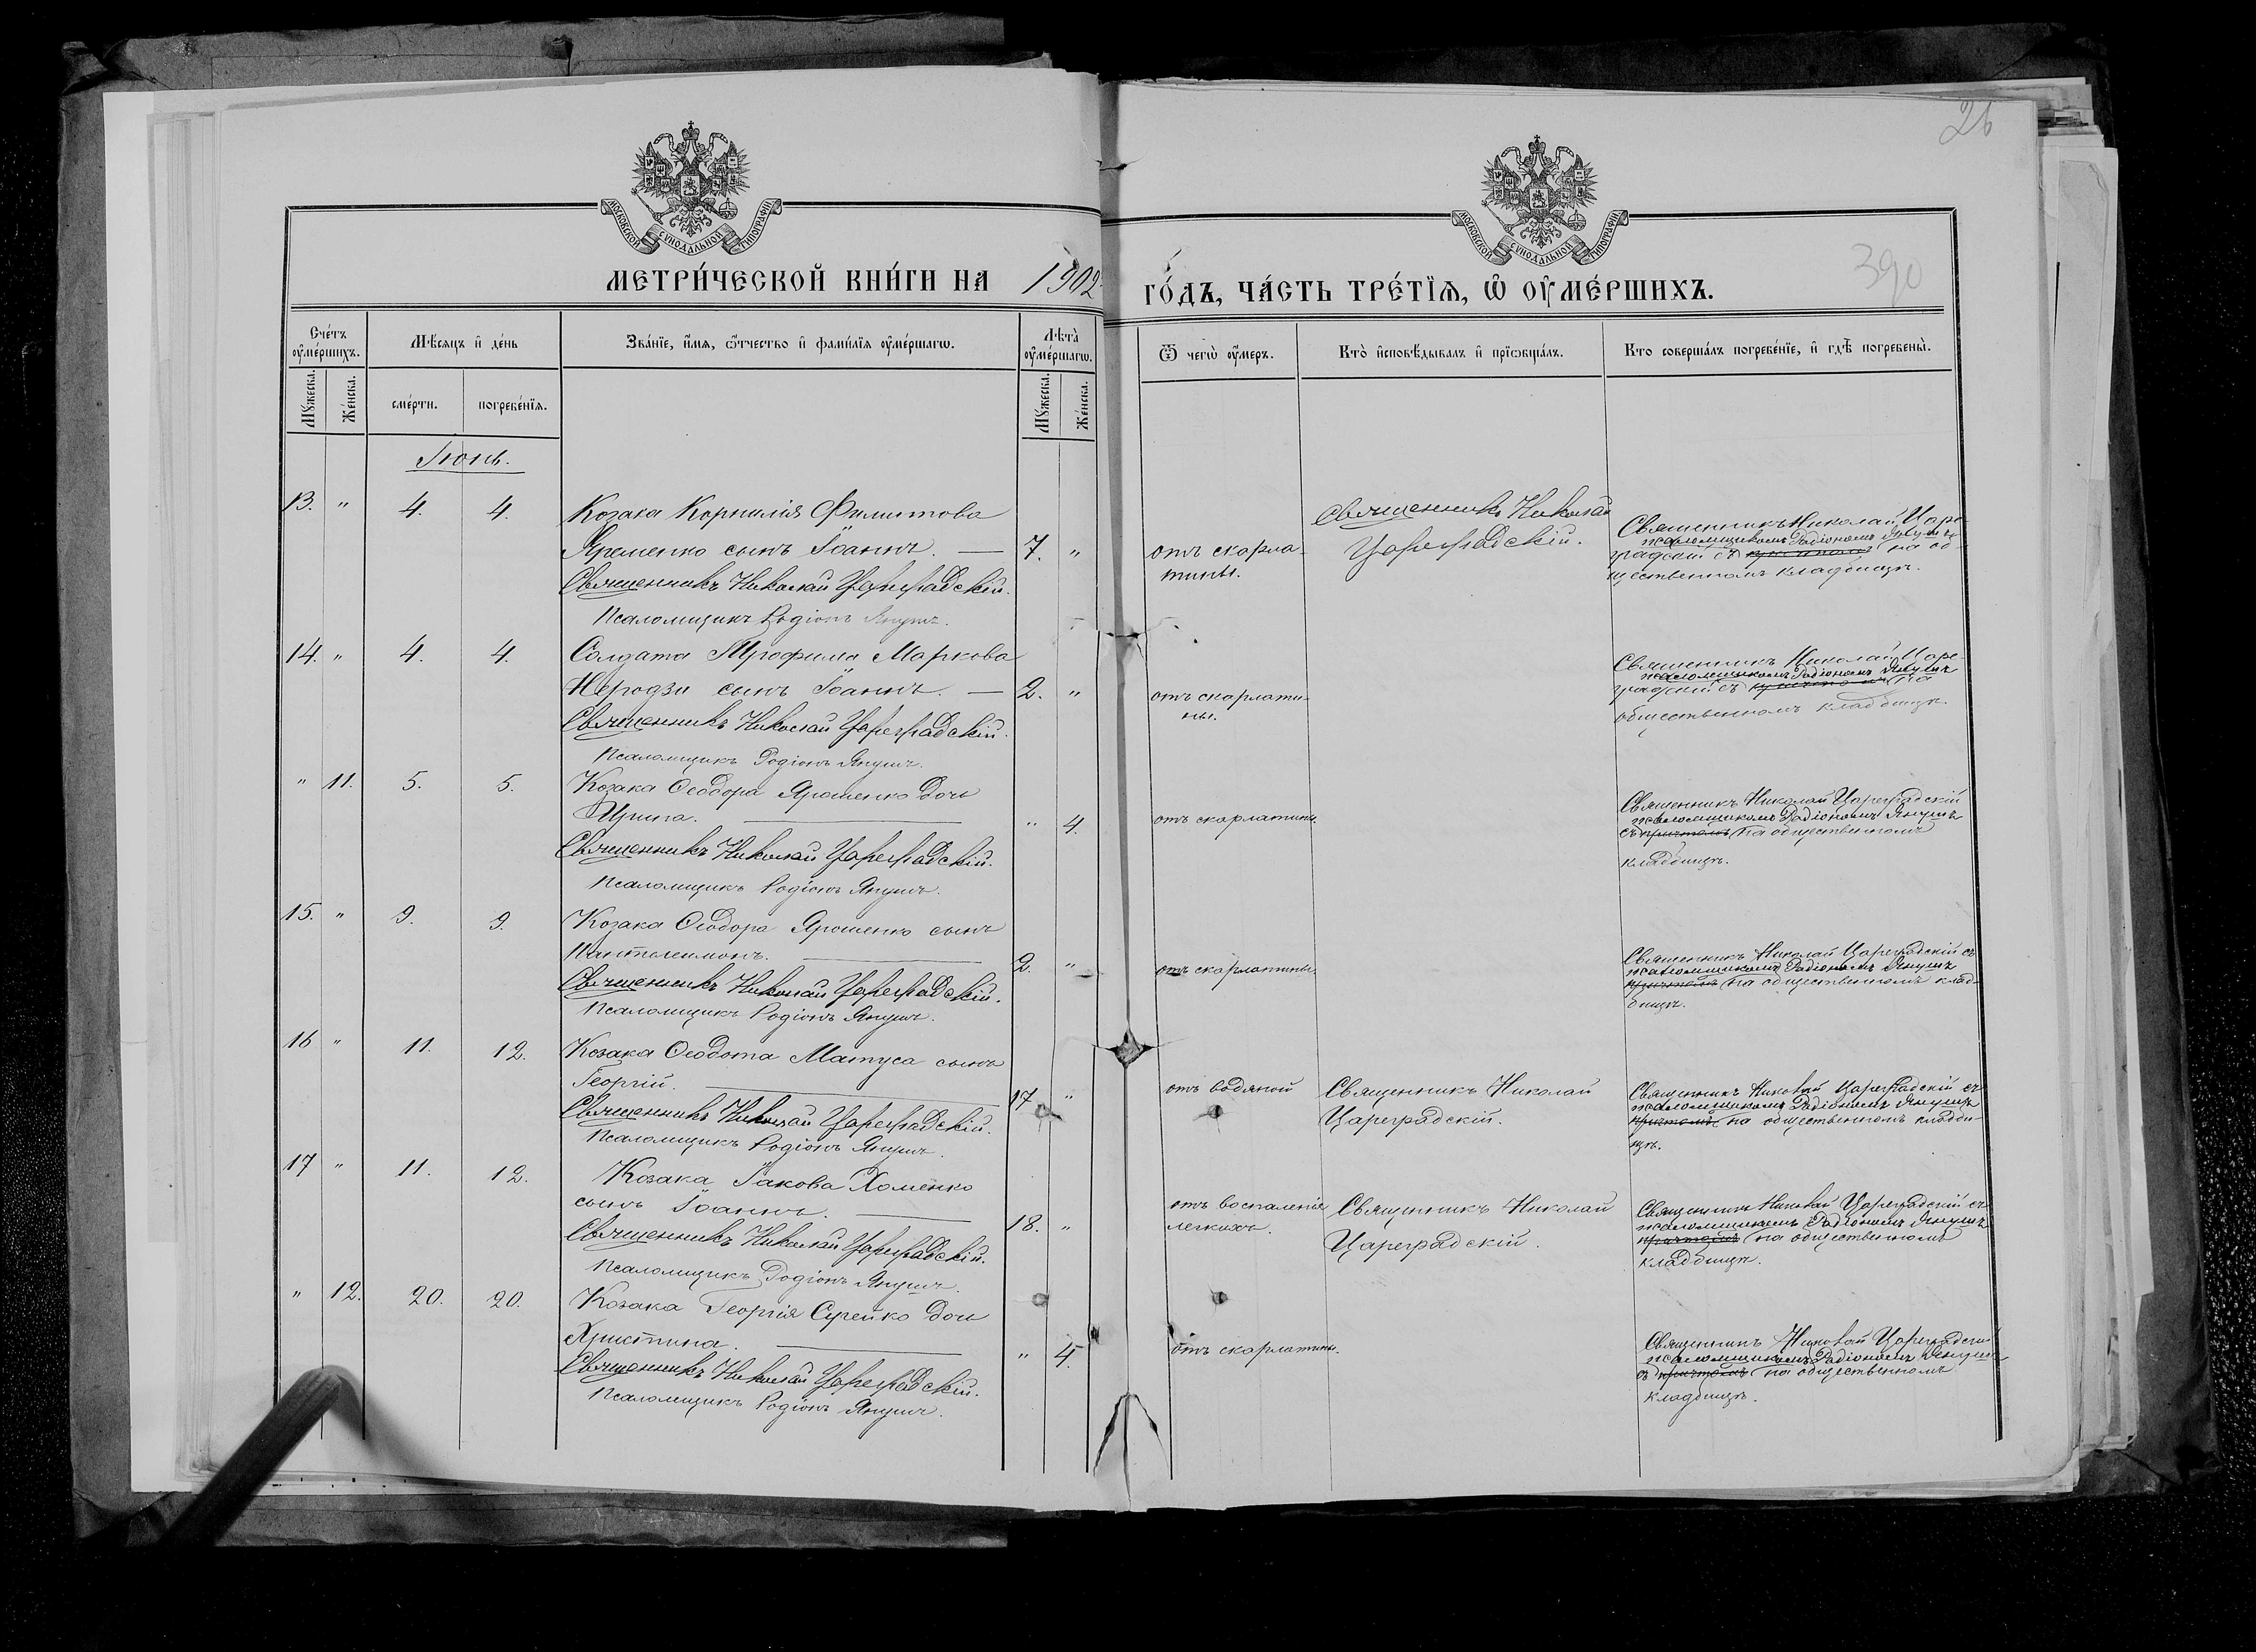 26
МОСКОВСКОЙ СѴНОДАЛЬНОЙ ТИПОГРАФІИ
МОСКОВСКОЙ СѴНОДАЛЬНОЙ ТИПОГРАФІИ
390
МЕТРИ́ЧЕСКОЙ КНИ́ГИ НА 1902 ГО́ДЪ, ЧА́СТЬ ТРЕ́ТЇѦ, Ѡ҆ ОУ҆МЕ́РШИХЪ.
Сче́тъ оу҆ме́ршихъ.
Мѣ́сяцъ и҆ де́нь
Зва́нїе, и҆́мѧ, ѻ҆́тчество и҆ фами́лїѧ оу҆ме́ршагѡ.
Лѣ́та оу҆ме́ршагѡ.
Ѿ чегѡ̀ оу҆́меръ.
Кто̀ и҆сповѣ́дывалъ и҆ прїѡбща́лъ.
Кто̀ соверша́лъ погребе́нїе, и҆ гдѣ̀ погребены̀.
Мꙋ́жеска.
Же́нска.
сме́рти.
погребе́нїѧ.
Мꙋ́жеска.
Же́нска.
Іюнь.
13. " 4. 4. Козака Корнилія Филиппова
Яременко сынъ Іоаннъ. — 7. "
Священникъ Николай Цареградскій.
Псаломщикъ Родіонъ Янушъ.
отъ скарла-
тины.
Священникъ Николай
Цареградскій.
Священникъ Николай Царе-
псаломщикомъ Радіономъ Янушъ
градскій съ причтомъ на об-
щественномъ кладбищѣ.
14. " 4. 4. Солдата Трофима Маркова
сынъ Іоаннъ. — 2. "
Священникъ Николай Цареградскій.
Псаломщикъ Родіонъ Янушъ.
отъ скарлати-
ны.
Священникъ Николай Царе-
псаломщикомъ Радіономъ Янушъ
градскій съ причтомъ на
общественномъ кладбищѣ.
" 11. 5. 5. Козака Ѳеодора Ярошенко дочь
Ирина. " 4.
Священникъ Николай Цареградскій.
Псаломщикъ Родіонъ Янушъ.
отъ скарлатины.
Священникъ Николай Цареградскій
псаломщикомъ Радіономъ Янушъ
съ причтомъ на общественномъ
кладбищѣ.
15. " 9. 9. Козака Ѳеодора Ярошенко сынъ
Пантолеимонъ. 2. "
Священникъ Николай Цареградскій.
Псаломщикъ Родіонъ Янушъ.
отъ скарлатины.
Священникъ Николай Цареградскій съ
псаломщикомъ Радіономъ Янушъ
причтомъ на общественномъ клад-
бищѣ.
16 " 11. 12. Козака Ѳеодота Матуса сынъ
Георгій. 17 "
Священникъ Николай Цареградскій.
Псаломщикъ Родіонъ Янушъ.
отъ водяной
Священникъ Николай
Цареградскій.
Священникъ Николай Цареградскій съ
псаломщикомъ Радіономъ Янушъ
причтомъ на общественномъ кладби-
щѣ.
17 " 11. 12. Козака Іакова Хоменко
сынъ Іоаннъ. 18. "
Священникъ Николай Цареградскій.
Псаломщикъ Родіонъ Янушъ.
отъ воспаленія
легкихъ.
Священникъ Николай
Цареградскій.
Священникъ Николай Цареградскій съ
псаломщикомъ Радіономъ Янушъ
причтомъ на общественномъ
кладбищѣ.
" 12. 20. 20. Козака Георгія Сурейко дочь
Христина. " 4.
Священникъ Николай Цареградскій.
Псаломщикъ Родіонъ Янушъ.
отъ скарлатины.
Священникъ Николай Цареградскій
псаломщикомъ Радіономъ Янушъ
съ причтомъ на общественномъ
кладбищѣ.